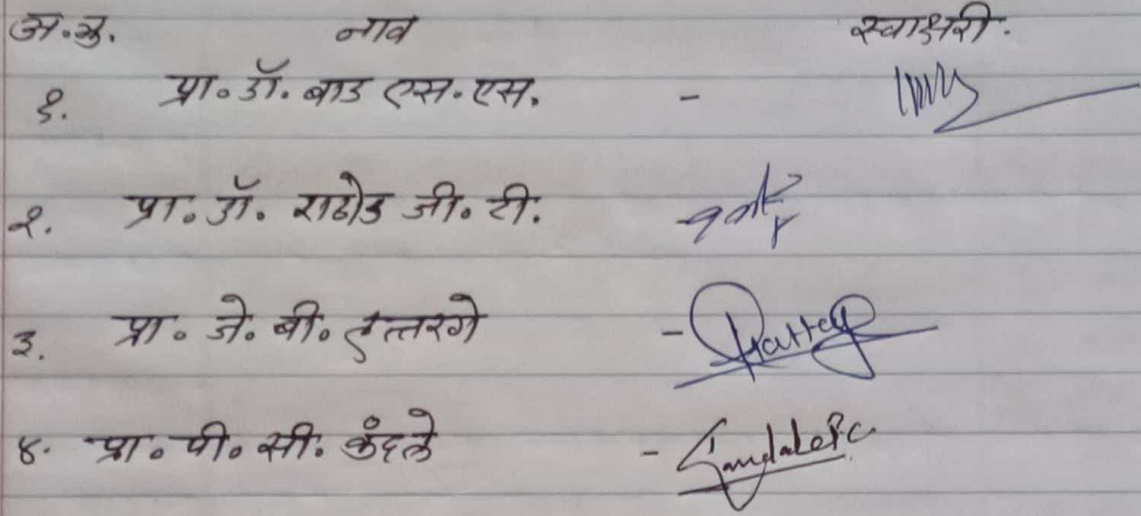 अ.क्र. नाव स्वाक्षरी.
१. प्रा. डॉ. बाड एस. एस. -
२. प्रा. डॉ. राठोड जी. टी.
३. प्रा. जे. बी. हत्तरगे -
४. प्रा. पी. सी. कुंदले -